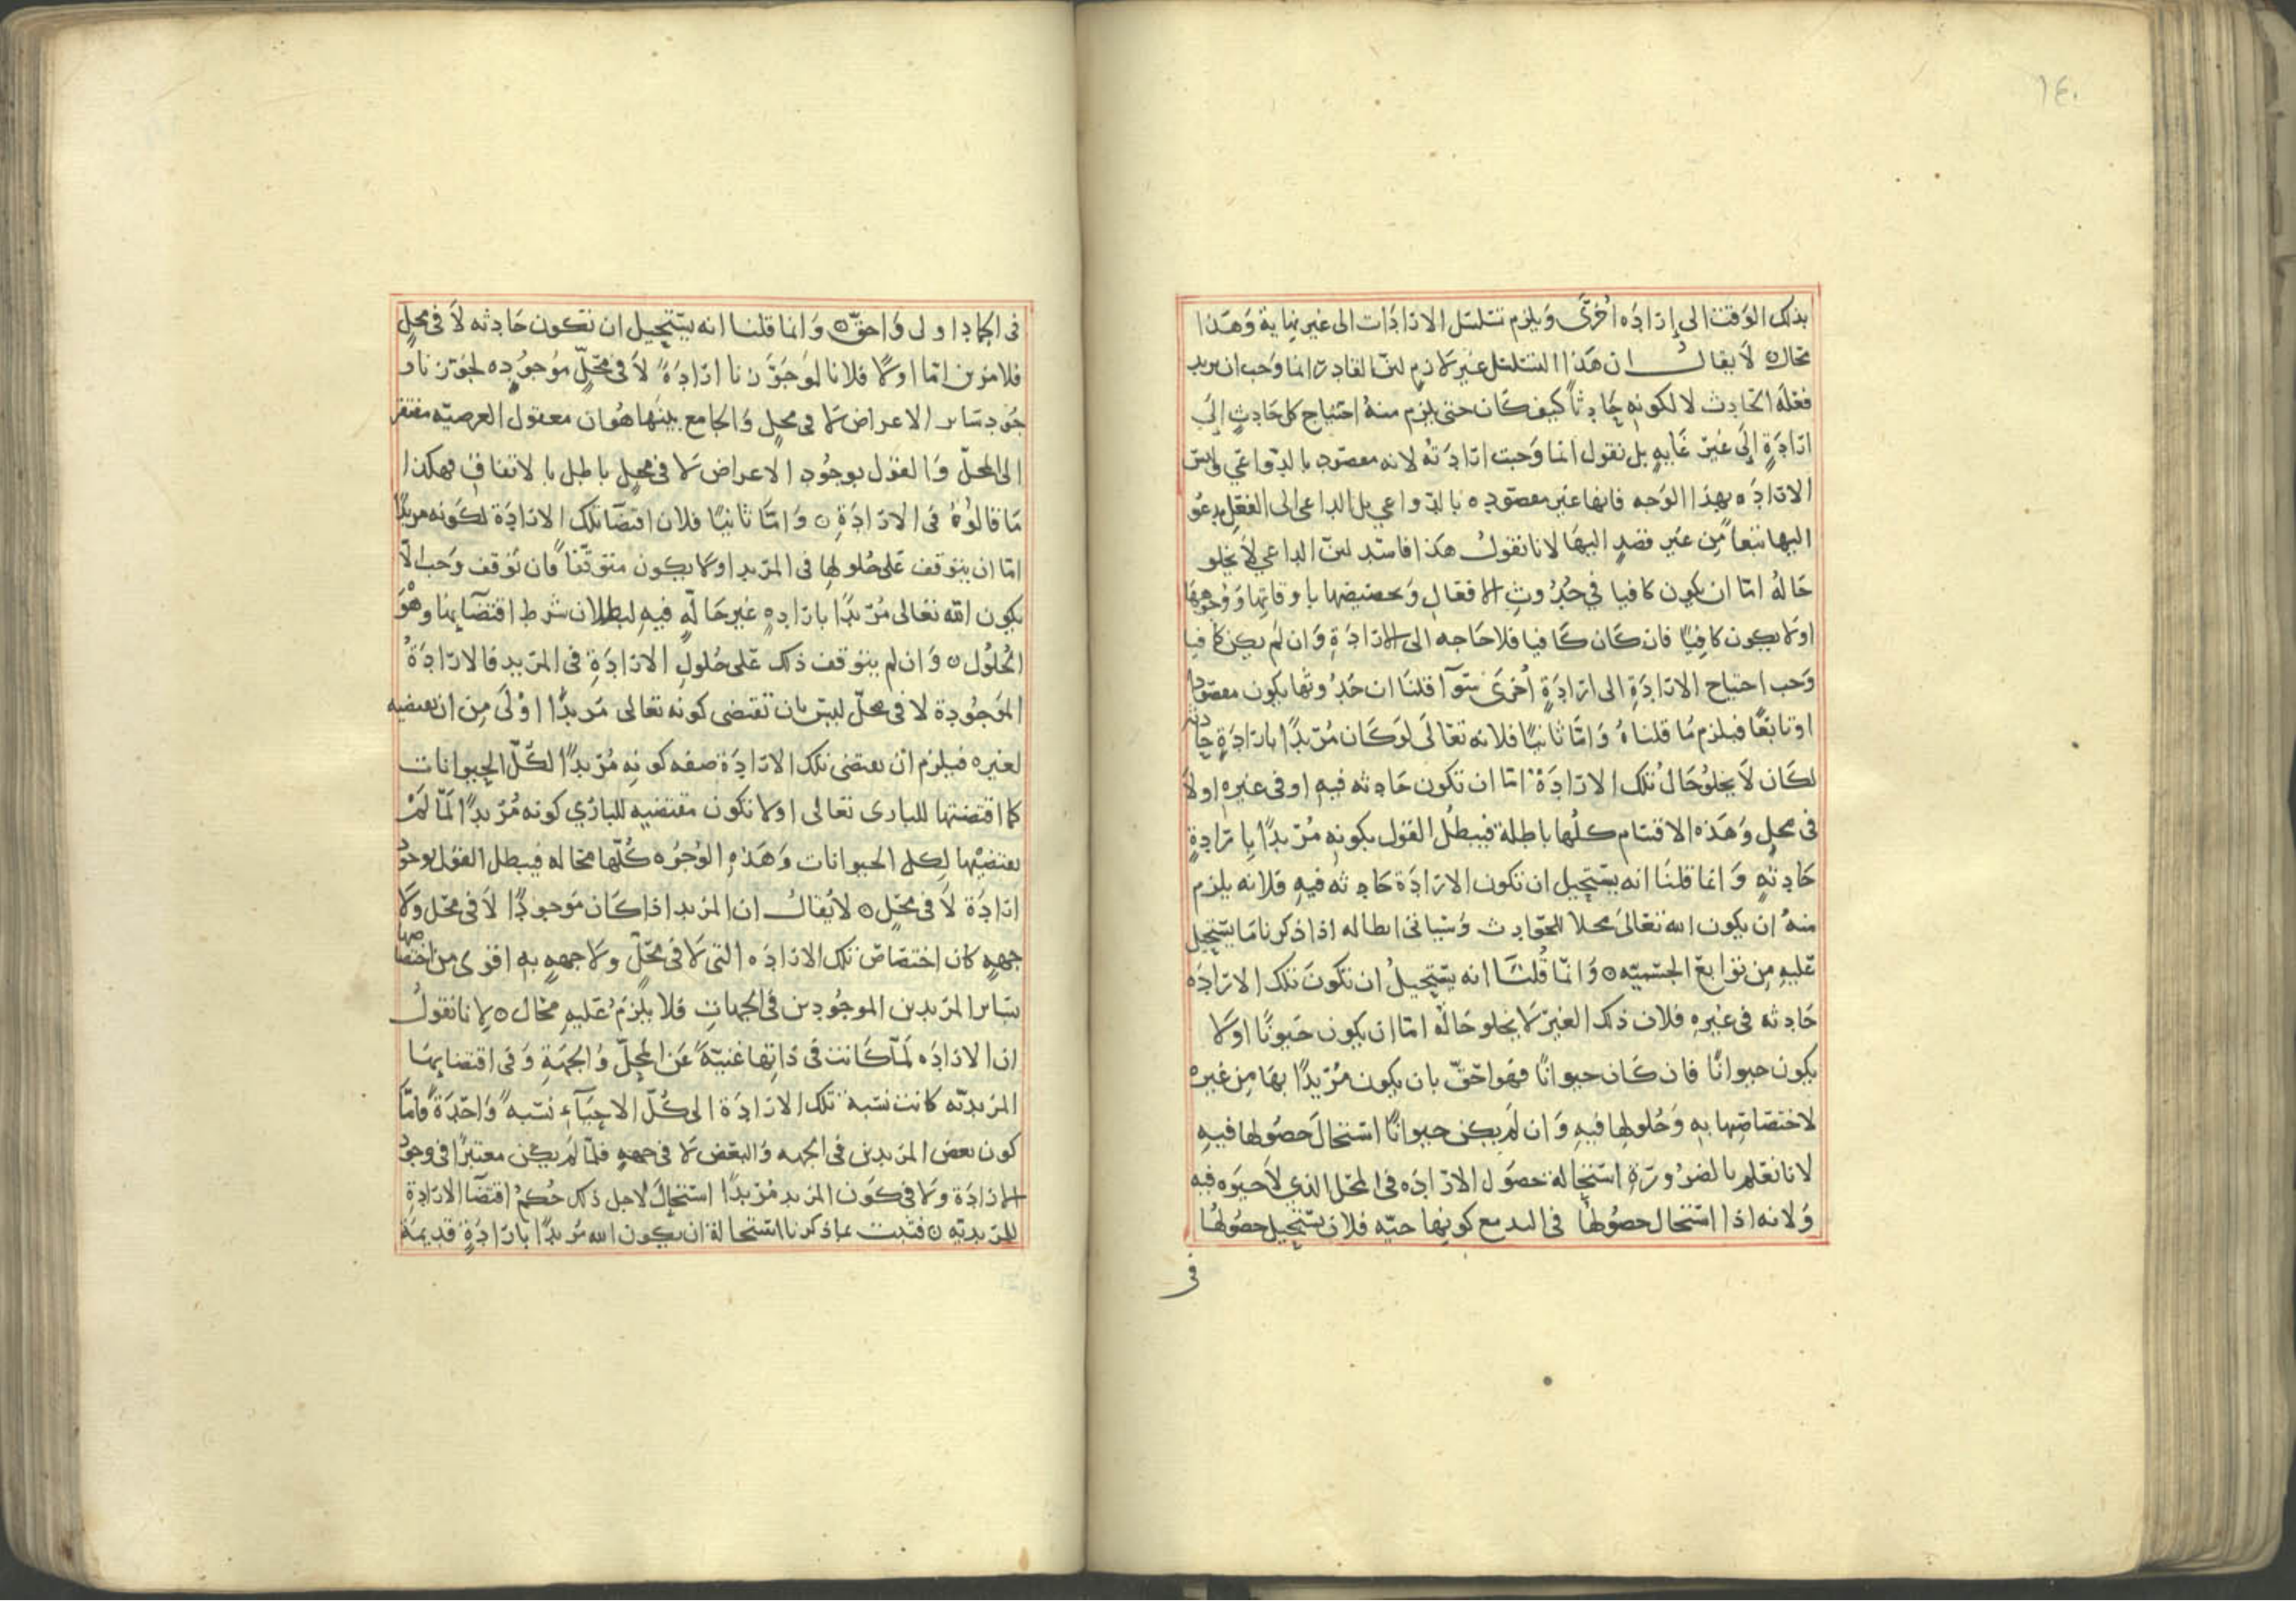 ١٤٠
بذلك الوقت الى إرادَه أخرَى وَيلزم تسَلسل الارادَات الى غير نهاية وَهَذا
محَال ٥ لَا يقالُ ان هَذا التسَلسُل غير لازم لانّ القادر انما وَجب ان يريد
فعْلَه الحادِث لا لكونهِ حَادِثاً كيف كَان حتى يلزم منهُ احتيَاج كل حَادِثٍ الَى
ارَادَةٍ إلَى غير غَايهٍ بل نقول انما وَجبت ارادَتهُ لانه مقصوُد بالدّواعى وليسَ
الارَادَه بهذا الوَجه فانها غير مقصوده بالدّواعي بل الداعى الى الفعْل يدعُو
اليهَا تبَعاً مِن غير قصدٍ اليهَا لانا نقولُ هَذا فاسِد لانّ الداعي لَا يخلو
حَالهُ امّا ان يكون كافيا في حُدُوثِ الافعَالِ وَتخصيصِها باوقاتِها وَوُجوهِهَا
اولَا يكون كافِيًا فان كَان كَافيا فلا حَاجه الى الارَادَةِ وَان لم يكن كافيا
وَجب احتياج الارَادَةِ الى ارَادَةٍ أخرَى سَوَآ قلنَا ان حَدُوثها يكون مقصُودًا
اوتابعًا فيلزم مَا قلنَاهُ وَامّا ثانيًا فلانه تعَالَى لوَ كَان مُرِيدًا بارَادَةٍ حادثه
لكَان لَا يخلوُ حَالُ تلك الارَادَة امّا ان تكون حَادِثه فيهِ اوفى غيرهِ اولَا
فى محلٍ وَهَذه الاقسَام كلُها باطلة فيبطُل القول بكونهِ مُرِيدًا بارَادِةٍ
حَادِثهٍ وَانما قلنَا انه يسَتحيل ان تكون الارَادَة حَادِثه فيهِ فلانه يلزم
منهُ ان يكون الله تعَالىَ محلا للحَوَادِث وَسَياتى ابطاله اذا ذكرنا مَا يسَتحيل
عَليهِ مِن توَابع الجسميّه ٥ وَانمّا قُلنَا انه يسَتحيلُ ان تكونَ تلك الارَادَه
حَادِثه فى غيرهِ فلان ذلك الغيرَ لَا يخلو حَاله امّا ان يكون حَيوانًا اولَا
يكون حيوانًا فان كَان حيوانًا فهَو احَقّ بان يكون مُرِيدًا بهَا مِن غيره
لاختصَاصِها بهِ وَحُلولِها فيهِ وَان لمَ يكن حيوانًا استحالَ حصُولها فيهِ
لانا نعَلم بالضرُورَةِ استحَالة حصُول الارَادَه فى المَحَلّ الذي لَا حيَوه فيه
وَلانه اذا استحال حصُولها فى اليد مع كونها حيّه فلان يسَتحيل حصُولهُا
فى
فى الجمادِ اولى وَاحقّ ٥ وَانما قلنا انه يسَتحيل ان تكون حَادِثه لَا فى محلٍ
فلامرَين امّا اولًا فلانا لوَ جَوّزنا ارادَةً لَا فى محَلٍّ موُجوُدِه لجَوّزنا و
جوُد سَائر الاعراض لَا فى محلٍ وَالجامع بينهَا هُوان معقول العرضيّه مفتقر
الى المَحلّ وَالقول بوجُودِ الاعراض لَا فى محلٍ باطل بالاتفاقِ فهكذا
مَا قالوُهُ فى الارَادَةِ ٥ وَامّا ثانيًا فلان اقتضَا تلك الارادَة لكَونه مريدًا
امّا ان يتوَقف عَلى حُلولها فى المرَيد اولَا يكون متوَقّفاً فان توقف وَجب الّا
يكون الله تعَالى مُرَيدًا بارَادهٍ غير حَالّهٍ فيهِ لبطلان شرط اقتضَايها وهْوَ
الحُلوُل ٥ وَان لم يتوَقف ذلك عَلى حُلولِ الارَادَةِ فى المرَيد فالارَادَةُ
الموَجُودِة لا فى محَلّ ليسَ بان تقتضى كونه تعَالى مَريدًا اوْلَى مِن ان تقتضيه
لغيره فيلزم ان تقتضى تلك الارَادَة صفه كونِه مُرَيدًا لكُلّ الحيوانات
كما اقتضتها للبارى تعَالى اولا تكون مقتضيه للبارَي كونه مُرَيدًا لمَا لمَ
تقتضيْها لِكل الحيوانات وَهَذهِ الوُجوُه كُلها محَاله فيبطل القوَل بوجوُد
ارَادَة لَا فى محَلٍ ٥ لا يُقالُ ان المرَيد اذا كَان موَجودًا لَا فى محَل ولَا
جهةٍ كان اختصَاصْ تلك الارَادَه التى لَا فى محَلّ ولَا جهةٍ بهِ اقوى من اختصاصها
بسَائر المرَيدين الموجُودِين فى الجهاتِ فلا يلزمُ عَليهِ محَال ٥ لِانا نقولُ
ان الارَادَه لمَا كَانت فى ذَاتِها غنيّةً عَن المَحِلّ وُالجهَةِ وَفى اقتضَايهَا
المرَيديّه كانت نسَبة تلك الارَادَة الى كُلّ الاحيَآءِ نسَبهً وَاحِدَةً فامّا
كون بعض المرَيدين فى الجهه وَالبعض لَا فى جههٍ فلمّا لمَ يكن معتبرًا فى وجوُد
الارَادَة ولَا فى كَون المرَيد مُرَيدًا استحَالَ لاجل ذلك حُكمُ اقتضَا الارَادَةِ
للمرَيديّه ٥ فثبت بما ذكرنا استحَالة ان يكون الله مُرَيدًا بارَادَةٍ قديمة